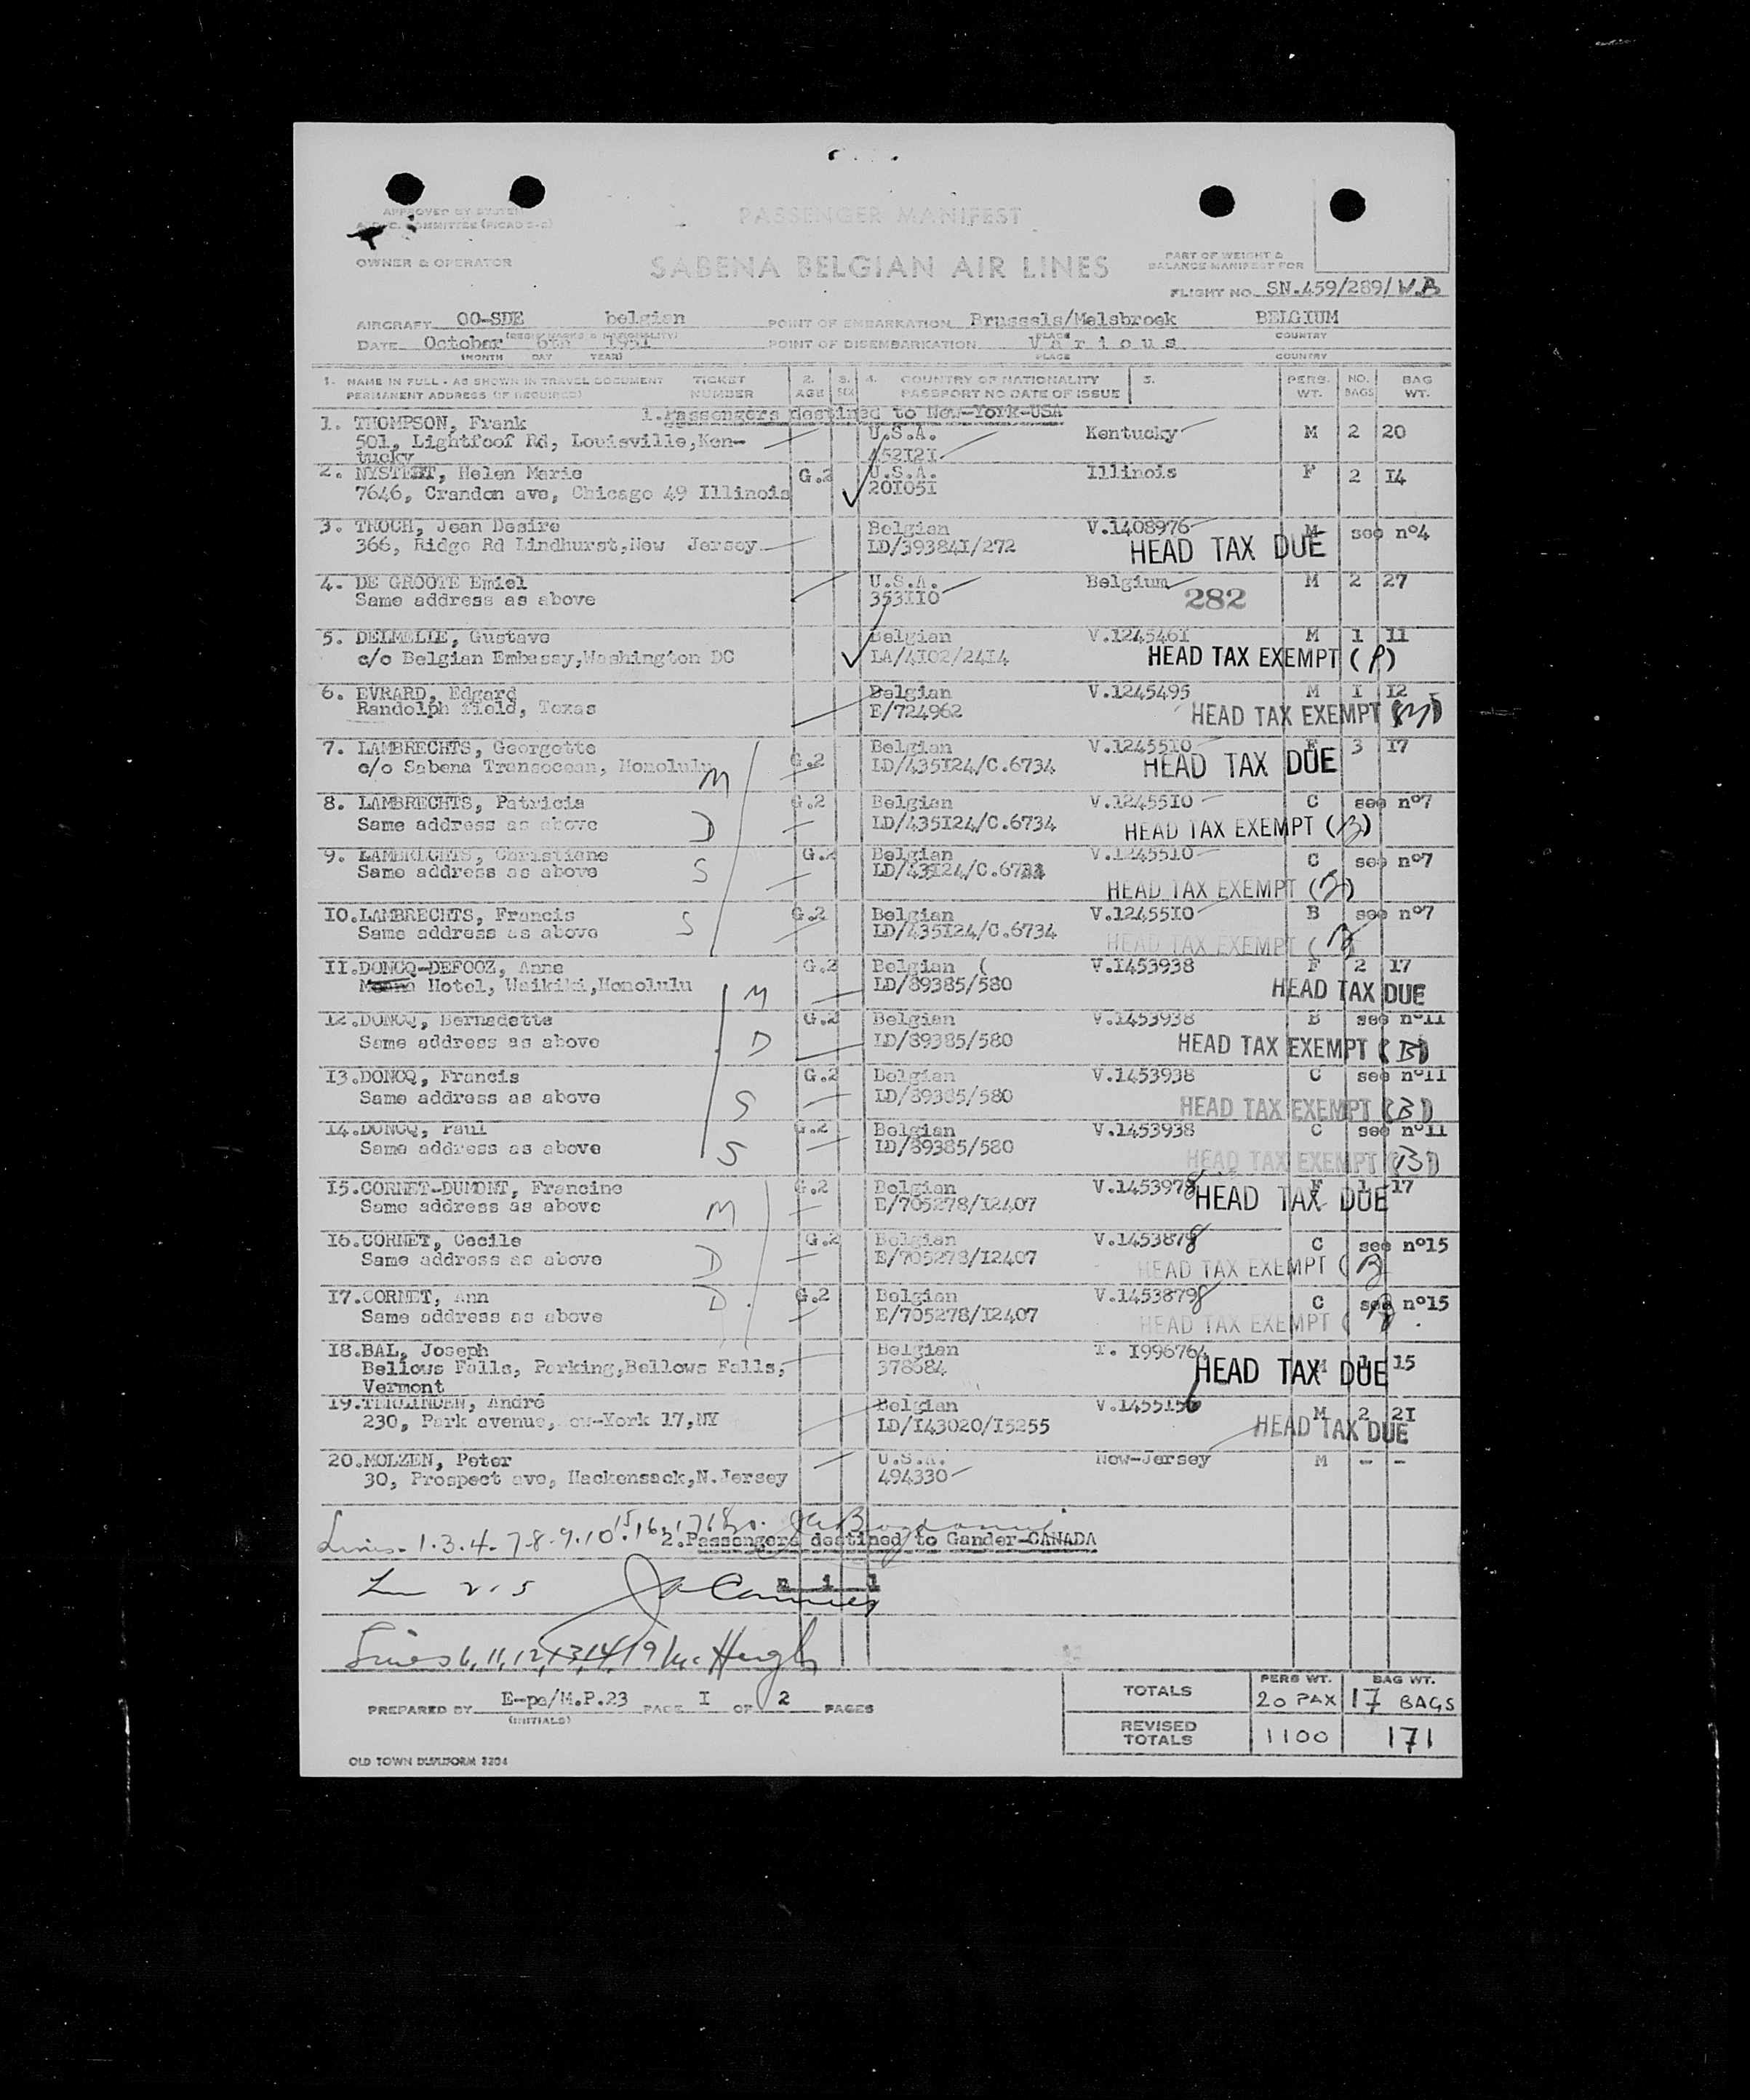 PASSENGER MANIFEST
APPROVED BY
COMMITTEE (PICAO
OWNER & OPERATOR
SABENA BELGIAN AIR LINES
PART OF WEIGHT &
BALANCE MANIFEST FOR
FLIGHT NO. SN.459/289/W.B
AIRCRAFT OO-SDE belgian POINT OF EMBARKATION Brussels/Melsbroek BELGIUM
DATE October 6th 1951 POINT OF DISEMBARKATION Various
(MONTH DAY YEAR) PLACE COUNTRY
1. NAME IN FULL - AS SHOWN IN TRAVEL DOCUMENT TICKET 2. 3. 4. COUNTRY OF NATIONALITY 5. PERS. NO. BAG
PERMANENT ADDRESS (IF REQUIRED) NUMBER AGE SEX PASSPORT NO DATE OF ISSUE WT. BAGS WT.
1.Passengers destined to New-York-USA
1. THOMPSON, Frank U.S.A. Kentucky M 2 20
501, Lightfoof Rd, Louisville,Ken-
tucky 452I2I
2. Helen Marie G.2 U.S.A. Illinois F 2 I4
7646, Crandon ave, Chicago 49 Illinois 20I05I
3. TROCH, Jean Desire Belgian V.1408976 M see nº4
366, Ridge Rd Lindhurst,New Jersey LD/39384I/272 HEAD TAX DUE
4. DE GROOTE Emiel U.S.A. Belgium M 2 27
Same address as above 353II0 282
5. DELMELLE, Gustave Belgian V.124546I M 1 11
c/o Belgian Embassy,Washington DC LA/4I02/24I4 HEAD TAX EXEMPT (P)
6. EVRARD, Edgard Belgian V.1245495 M I I2
Randolph field, Texas E/724962 HEAD TAX EXEMPT
7. LAMBRECHTS, Georgette G.2 Belgian V.12455I0 F 3 I7
c/o Sabena Transocean, Honolulu M LD/435I24/C.6734 HEAD TAX DUE
8. LAMBRECHTS, Patricia G.2 Belgian V.12455I0 C see nº7
Same address as above D LD/435I24/C.6734 HEAD TAX EXEMPT (B)
9. LAMBRECHTS, Christiane G.2 Belgian V.12455I0 C see nº7
Same address as above S HEAD TAX EXEMPT (B)
I0.LAMBRECHTS, Francis G.2 Belgian V.12455I0 B see nº7
Same address as above S LD/435I24/C.6734 HEAD TAX EXEMPT (B
II.DONCQ-DEFOOZ, Anne G.2 Belgian ( V.I453938 F 2 I7
Hotel, Waikiki,Honolulu M LD/89385/580 HEAD TAX DUE
I2.DONCQ, Bernadette G.2 Belgian V.1453938 B see nº11
Same address as above D LD/89385/580 HEAD TAX EXEMPT (B)
I3.DONCQ, Francis G.2 Belgian V.1453938 C see nº11
Same address as above S LD/89385/580 HEAD TAX EXEMPT (B)
I4.DONCQ, Paul G.2 Belgian V.1453938 C see nº11
Same address as above S LD/89385/580 HEAD TAX EXEMPT (B)
I5.CORNET-DUMONT, Francine G.2 Belgian V.1453978 F 1 17
Same address as above M E/705278/I2407 HEAD TAX DUE
I6.CORNET, Cecile G.2 Belgian V.1453878 C see nº15
Same address as above D E/705278/I2407 HEAD TAX EXEMPT (B
I7.CORNET, Ann D. G.2 Belgian V.1453879 C see nº15
Same address as above E/705278/I2407 HEAD TAX EXEMPT (
I8.BAL, Joseph Belgian T. I996764 M 1 15
Bellows Falls, Parking,Bellows Falls, 378684 HEAD TAX DUE
Vermont
I9.TERLINDEN, André Belgian V.1455156 M 2 2I
230, Park avenue, ew-York 17,NY LD/I43020/I5255 HEAD TAX DUE
20.MOLZEN, Peter U.S.A. New-Jersey M - -
30, Prospect ave, Hackensack,N.Jersey 494330
Lines. 1.3.4.7.8.9.10.15.16.17.18.20.
2.Passengers destined to Gander-CANADA
2.5 n i l
Lines 6,11,12,13,14,19 McHugh
TOTALS PERS WT. BAG WT.
20 PAX 17 BAGS
PREPARED BY E-pa/M.P.23 PAGE I OF 2 PAGES
(INITIALS)
REVISED TOTALS 1100 171
OLD TOWN 3204